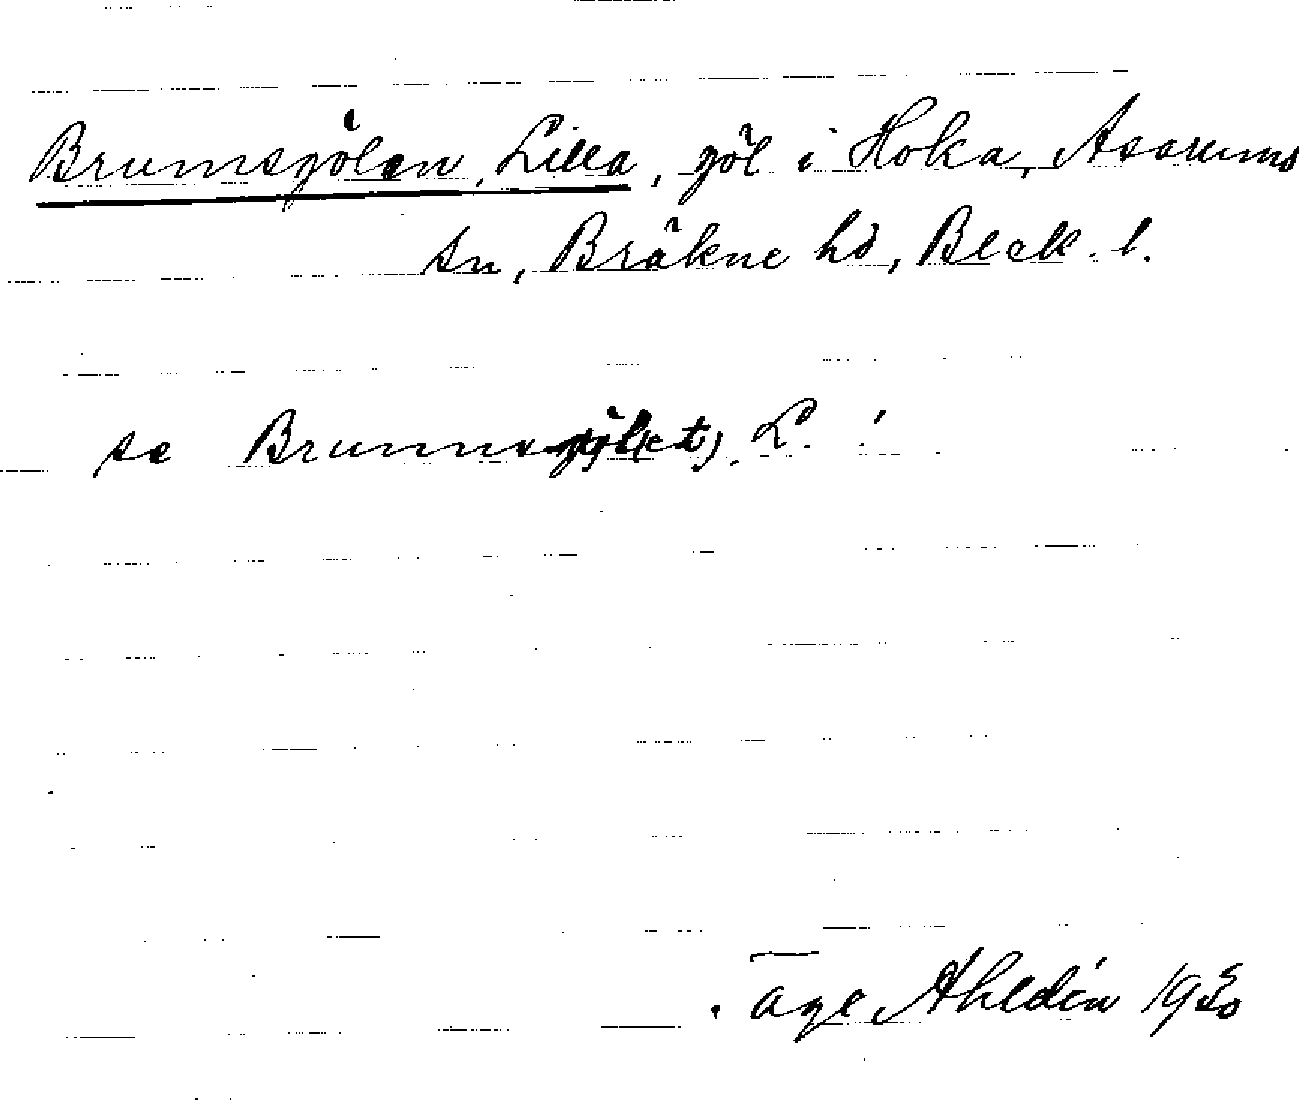 Brumsgölen, Lilla, göl i Hoka, Asarums
sn, Bräkne hd, Blek. l.
se Brunnsgöl(et), L. !
Åge Ahldén 1930